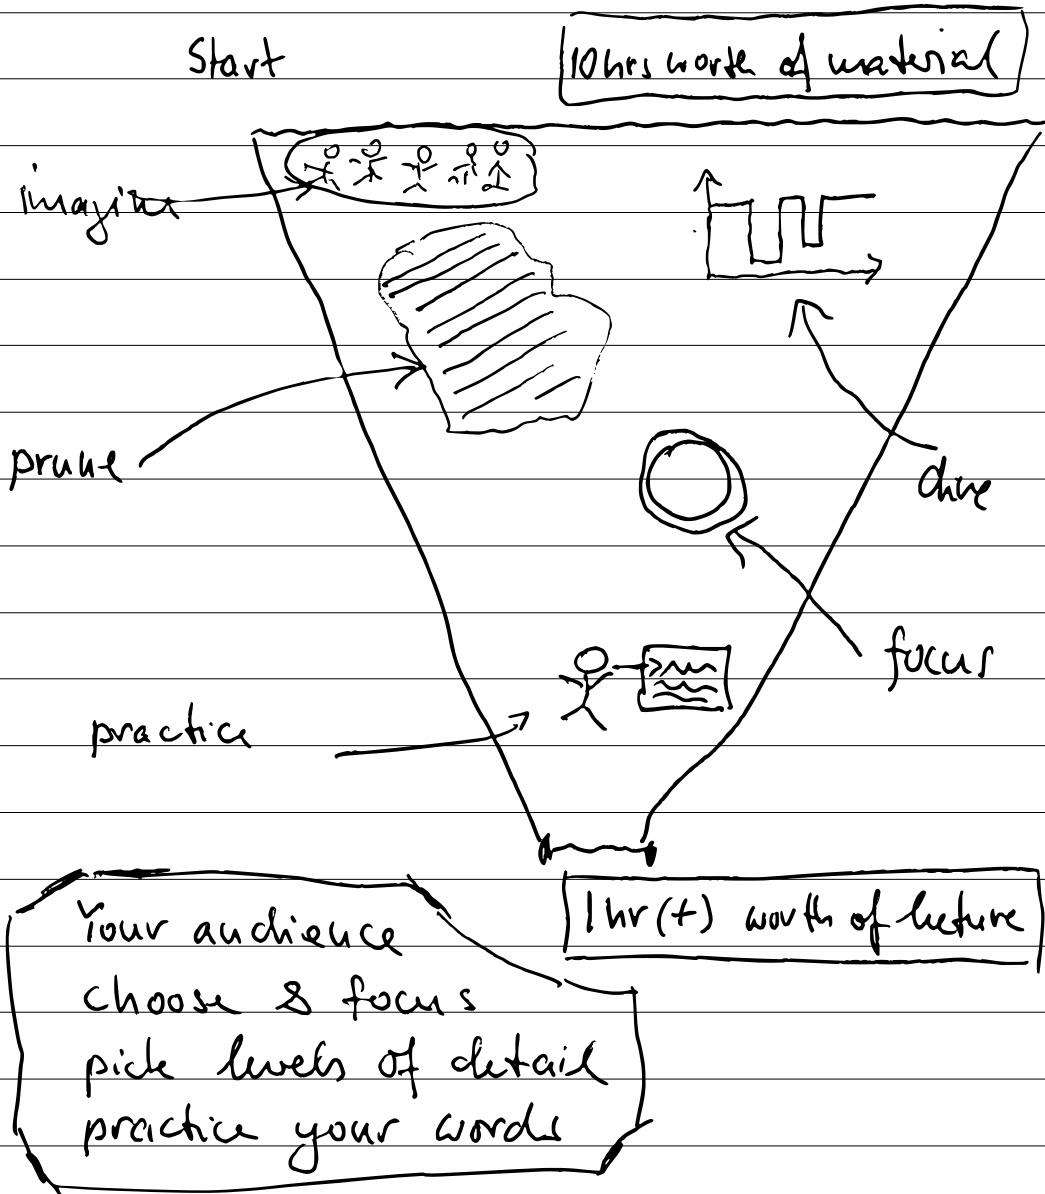 Start
10hrs worth of material
imagine
prune
dive
focus
practice
1hr(+) worth of lecture
Your audience
choose & focus
pick levels of detail
practice your words